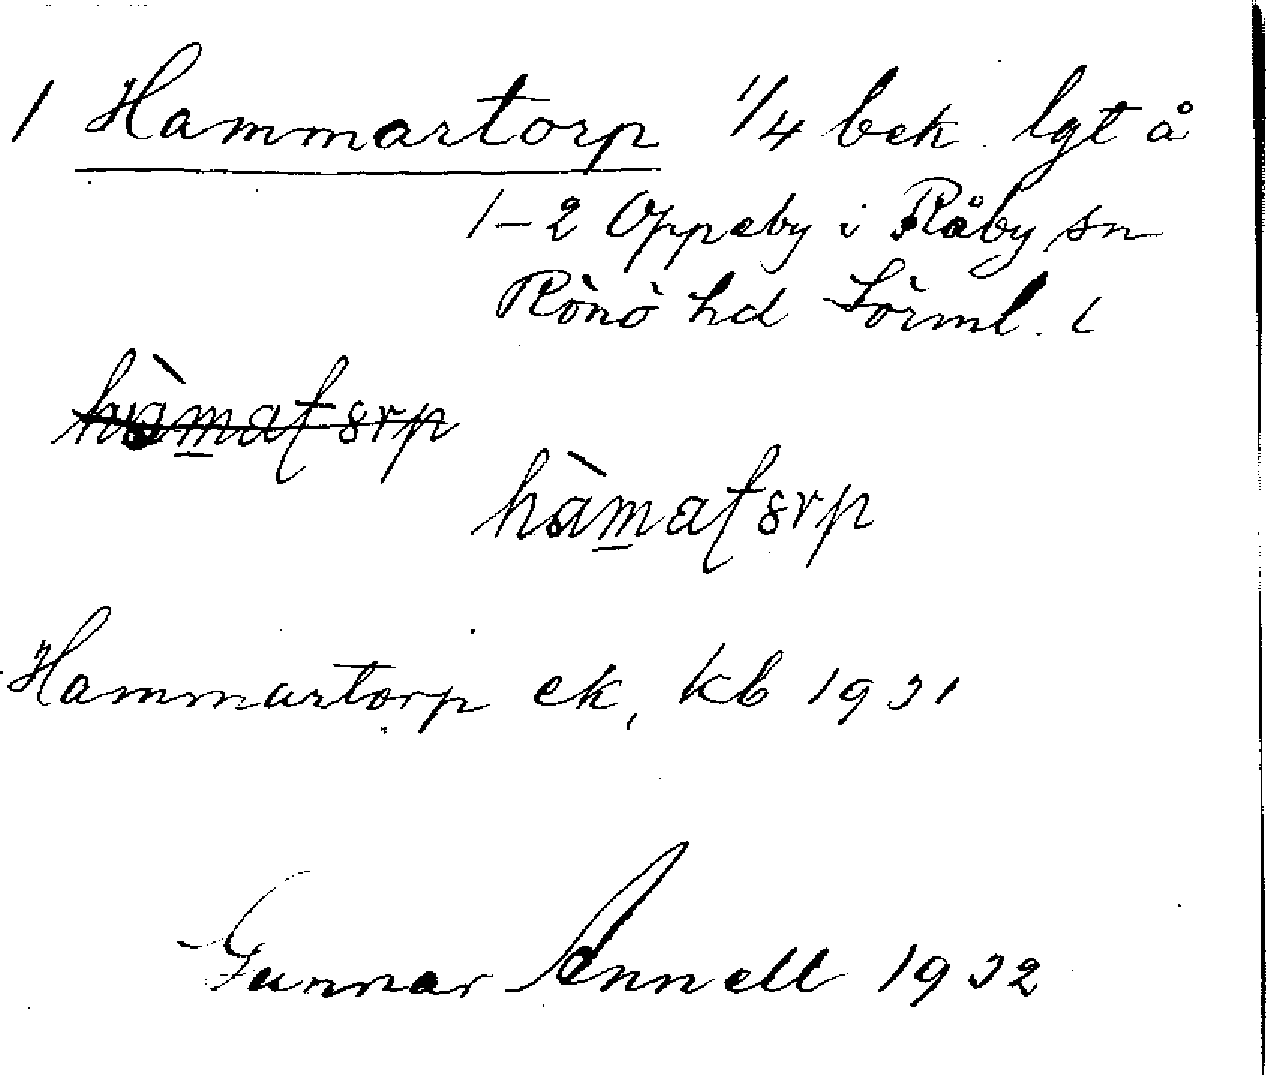 1 Hammartorp 1/4 bek. lgt å
1-2 Oppeby i Råby sn
Rönö hd Sörml. l
Hammartorp ek, kb 1931
Gunnar Annell 1932